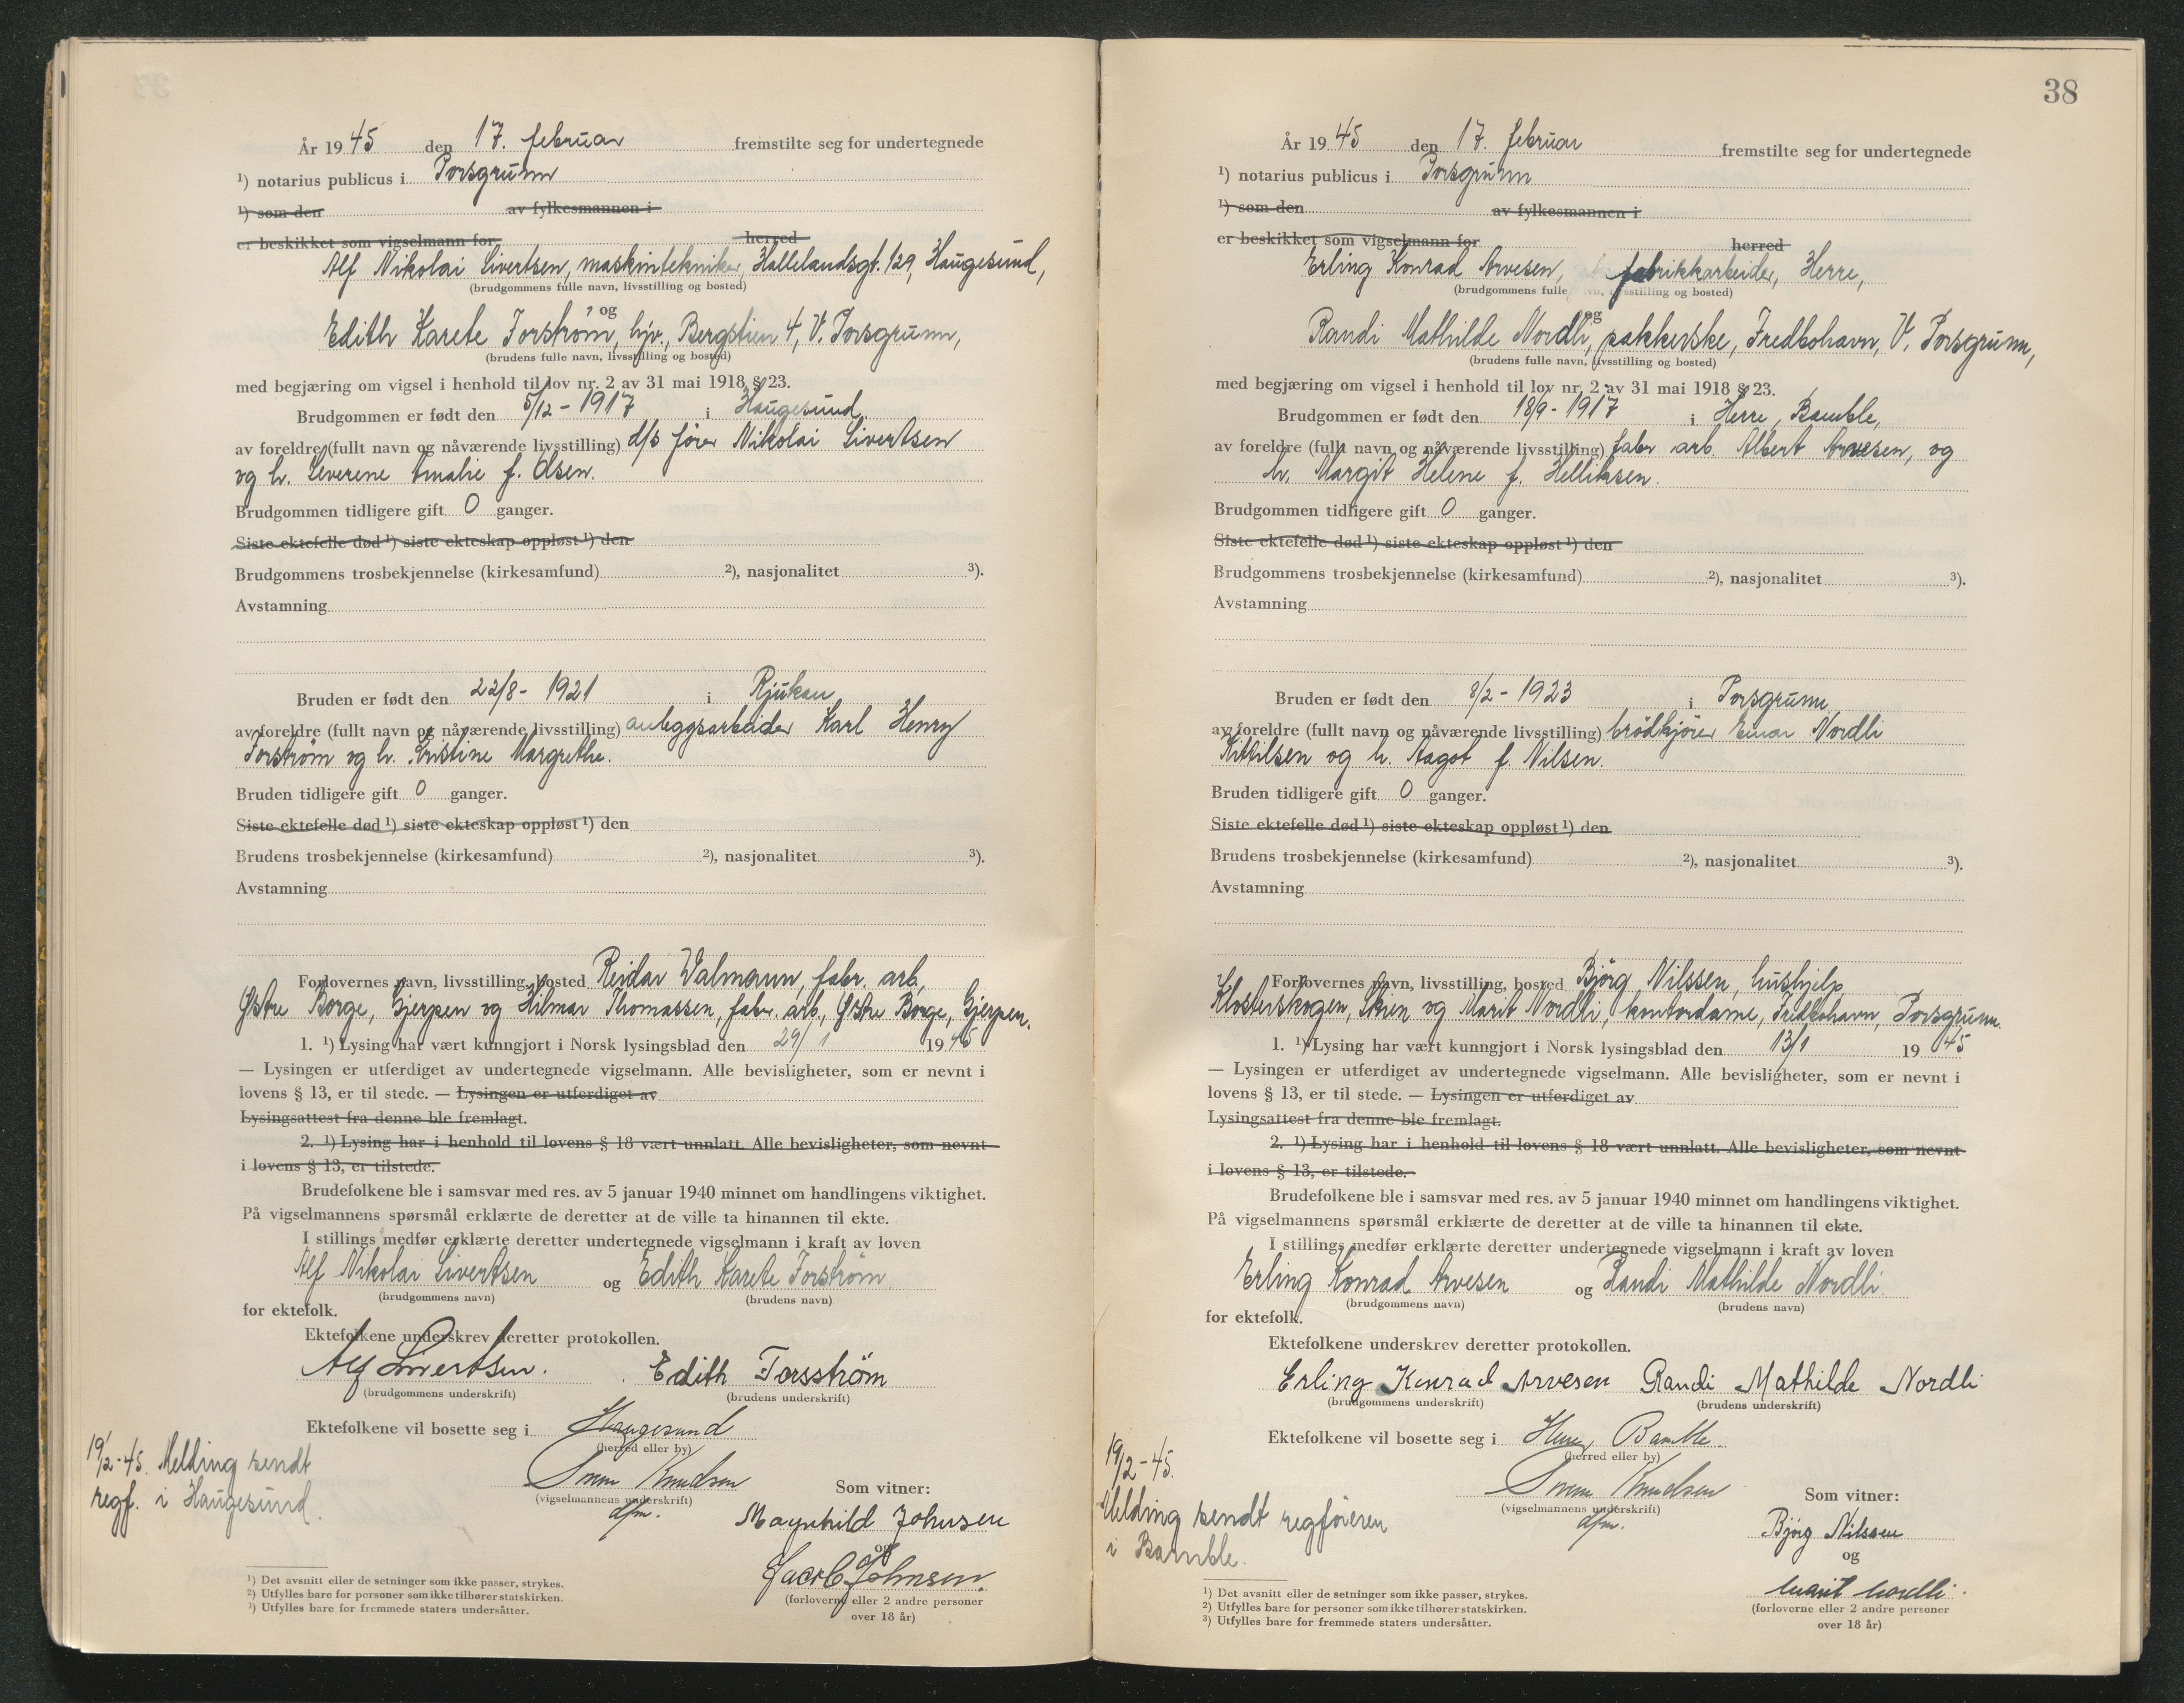 År 1945 den 17. februar fremstilte seg for undertegnede
¹) notarius publicus i Porsgrunn
¹) som den av fylkesmannen i
er beskikket som vigselmann for herred
Alf Nikolai Sivertsen, maskintekniker, Hallelandsgt. 129, Haugesund,
(brudgommens fulle navn, livsstilling og bosted)
og
Edith Karete Torström, hjv., Bergstien 4, V. Porsgrunn,
(brudens fulle navn, livsstilling og bosted)
med begjæring om vigsel i henhold til lov nr. 2 av 31 mai 1918 § 23.
Brudgommen er født den 5/12 - 1917 i Haugesund
av foreldre (fullt navn og nåværende livsstilling) d/s förer Nikolai Sivertsen
og h. Severene Amalie f. Olsen.
Brudgommen tidligere gift 0 ganger.
Siste ektefelle død ¹) siste ekteskap oppløst ¹) den
Brudgommens trosbekjennelse (kirkesamfund) ²), nasjonalitet ³).
Avstamning
Bruden er født den 22/8 - 1921 i Rjukan
av foreldre (fullt navn og nåværende livsstilling) anleggsarbeider Karl Henry
Torström og h. Kristine Margrethe.
Bruden tidligere gift 0 ganger.
Siste ektefelle død ¹) siste ekteskap oppløst ¹) den
Brudens trosbekjennelse (kirkesamfund) ²), nasjonalitet ³).
Avstamning
Forlovernes navn, livsstilling, bosted Reidar Walmann, fabr. arb,
Østre Borge, Gjerpen og Hilmar Thomassen, fabr. arb., Østre Borge, Gjerpen.
1. ¹) Lysing har vært kunngjort i Norsk lysingsblad den 29/1 1945
— Lysingen er utferdiget av undertegnede vigselmann. Alle bevisligheter, som er nevnt i
lovens § 13, er til stede. — Lysingen er utferdiget av
Lysingsattest fra denne ble fremlagt.
2. ¹) Lysing har i henhold til lovens § 18 vært unnlatt. Alle bevisligheter, som nevnt
i lovens § 13, er tilstede.
Brudefolkene ble i samsvar med res. av 5 januar 1940 minnet om handlingens viktighet.
På vigselmannens spørsmål erklærte de deretter at de ville ta hinannen til ekte.
I stillings medfør erklærte deretter undertegnede vigselmann i kraft av loven
Alf Nikolai Sivertsen og Edith Karete Torström
(brudgommens navn) (brudens navn)
for ektefolk.
Ektefolkene underskrev deretter protokollen.
Alf Sivertsen. Edith Torsström
(brudgommens underskrift) (brudens underskrift)
Ektefolkene vil bosette seg i Haugesund
(herred eller by)
19/2-45. Melding sendt
regf. i Haugesund.
Knudsen
(vigselmannens underskrift)
dfm.
Som vitner:
Magnhild Johnsen
og
Jacob Johnsen.
(forloverne eller 2 andre personer
over 18 år)
¹) Det avsnitt eller de setninger som ikke passer, strykes.
²) Utfylles bare for personer som ikke tilhører statskirken.
³) Utfylles bare for fremmede staters undersåtter.
38
År 1945 den 17. februar fremstilte seg for undertegnede
¹) notarius publicus i Porsgrunn
¹) som den av fylkesmannen i
er beskikket som vigselmann for herred
Erling Konrad Arvesen, fabrikkarbeider, Herre,
(brudgommens fulle navn, livsstilling og bosted)
og
Randi Mathilde Nordli, pakkerske, Fredbohavn, V. Porsgrunn,
(brudens fulle navn, livsstilling og bosted)
med begjæring om vigsel i henhold til lov nr. 2 av 31 mai 1918 § 23.
Brudgommen er født den 18/9 - 1917 i Herre, Bamble,
av foreldre (fullt navn og nåværende livsstilling) fabr arb. Albert Arvesen, og
h. Margit Helene f. Helliksen.
Brudgommen tidligere gift 0 ganger.
Siste ektefelle død ¹) siste ekteskap oppløst ¹) den
Brudgommens trosbekjennelse (kirkesamfund) ²), nasjonalitet ³).
Avstamning
Bruden er født den 8/2 - 1923 i Porsgrunn
av foreldre (fullt navn og nåværende livsstilling) brödkjörer Einar Nordli
Kittilsen og h. Aagot f. Nilsen.
Bruden tidligere gift 0 ganger.
Siste ektefelle død ¹) siste ekteskap oppløst ¹) den
Brudens trosbekjennelse (kirkesamfund) ²), nasjonalitet ³).
Avstamning
Forlovernes navn, livsstilling, bosted Björg Nilssen, hushjelp
Klosterskogen, Skien og Marit Nordli, kontordame, Fredbohavn, Porsgrunn.
1. ¹) Lysing har vært kunngjort i Norsk lysingsblad den 13/1 1945
— Lysingen er utferdiget av undertegnede vigselmann. Alle bevisligheter, som er nevnt i
lovens § 13, er til stede. — Lysingen er utferdiget av
Lysingsattest fra denne ble fremlagt.
2. ¹) Lysing har i henhold til lovens § 18 vært unnlatt. Alle bevisligheter, som nevnt
i lovens § 13, er tilstede.
Brudefolkene ble i samsvar med res. av 5 januar 1940 minnet om handlingens viktighet.
På vigselmannens spørsmål erklærte de deretter at de ville ta hinannen til ekte.
I stillings medfør erklærte deretter undertegnede vigselmann i kraft av loven
Erling Konrad Arvesen og Randi Mathilde Nordli
(brudgommens navn) (brudens navn)
for ektefolk.
Ektefolkene underskrev deretter protokollen.
Erling Konrad Arvesen Randi Mathilde Nordli
(brudgommens underskrift) (brudens underskrift)
Ektefolkene vil bosette seg i Herre, Bamble.
(herred eller by)
19/2-45.
Melding sendt regföreren
i Bamble.
Knudsen
(vigselmannens underskrift)
dfm.
Som vitner:
Björg Nilssen
og
Marit Nordli.
(forloverne eller 2 andre personer
over 18 år)
¹) Det avsnitt eller de setninger som ikke passer, strykes.
²) Utfylles bare for personer som ikke tilhører statskirken.
³) Utfylles bare for fremmede staters undersåtter.